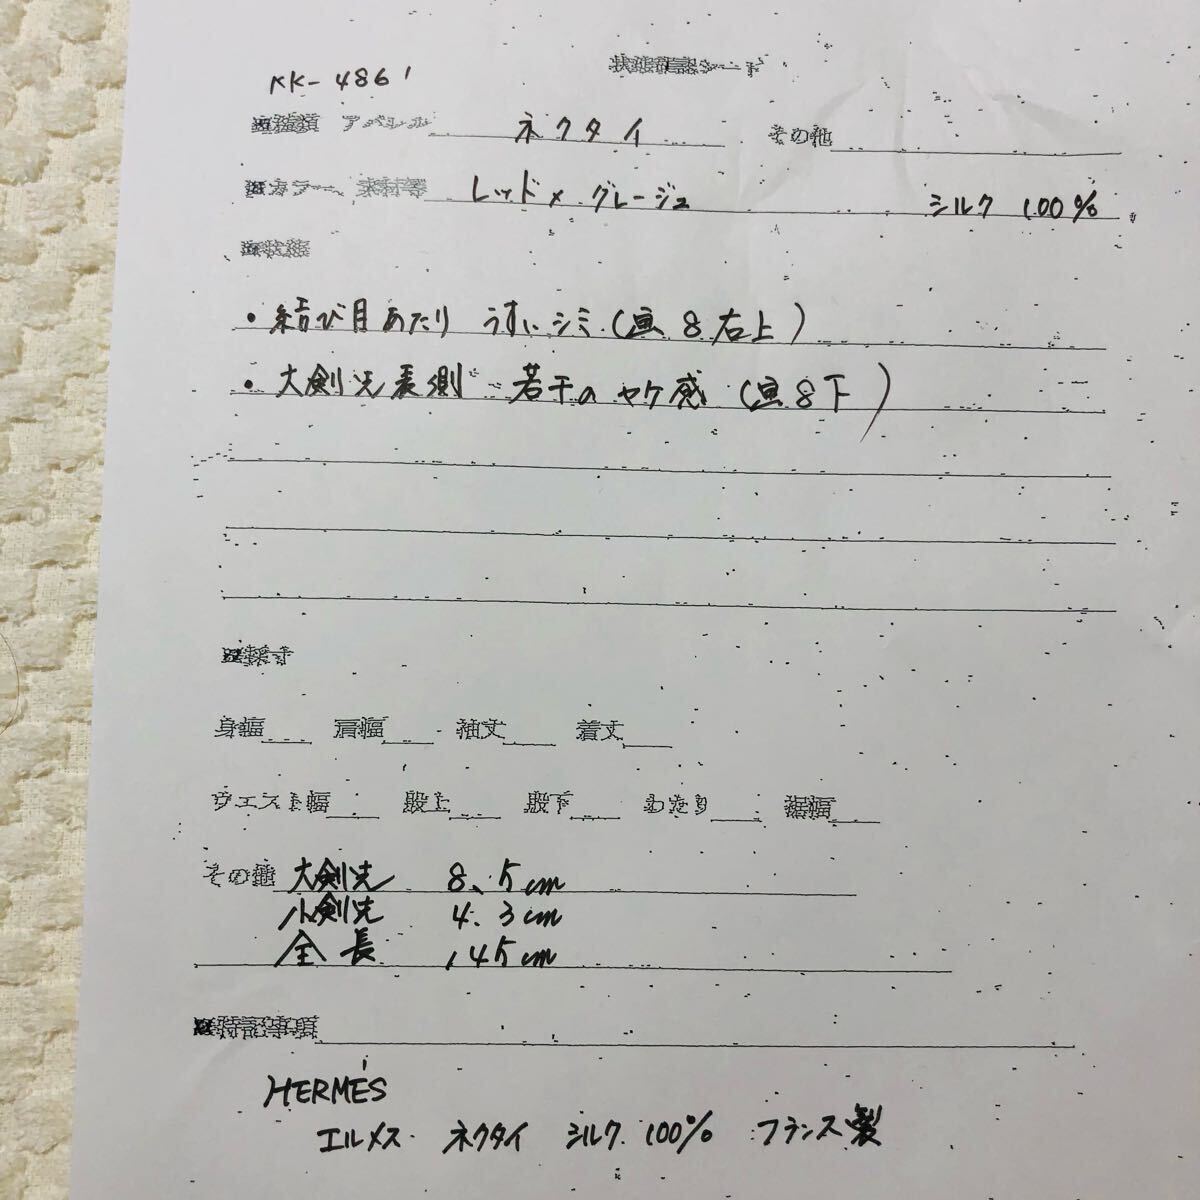 KK-4861
状態確認シート
※種類 アパレル ネクタイ その他
※カラー、素材等 レッド×グレージュ シルク 100%
※状態
・結び目あたり うすいシミ(画8右上)
・大剣先裏側 若干のヤケ感(画8下)
※採寸
身幅 肩幅 袖丈 着丈
ウエスト幅 股上 股下 わたり 裾幅
その他 大剣先 8.5cm
小剣先 4.3cm
全長 145cm
※特記事項
HERMÉS
エルメス ネクタイ シルク 100% フランス製